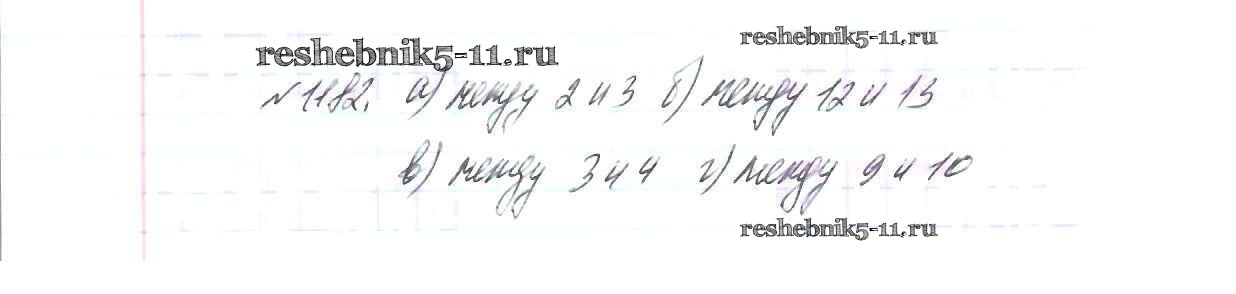 reshebnik5-11.ru
reshebnik5-11.ru
№1182. а) между 2 и 3 б) между 12 и 13
в) между 3 и 4 г) между 9 и 10
reshebnik5-11.ru